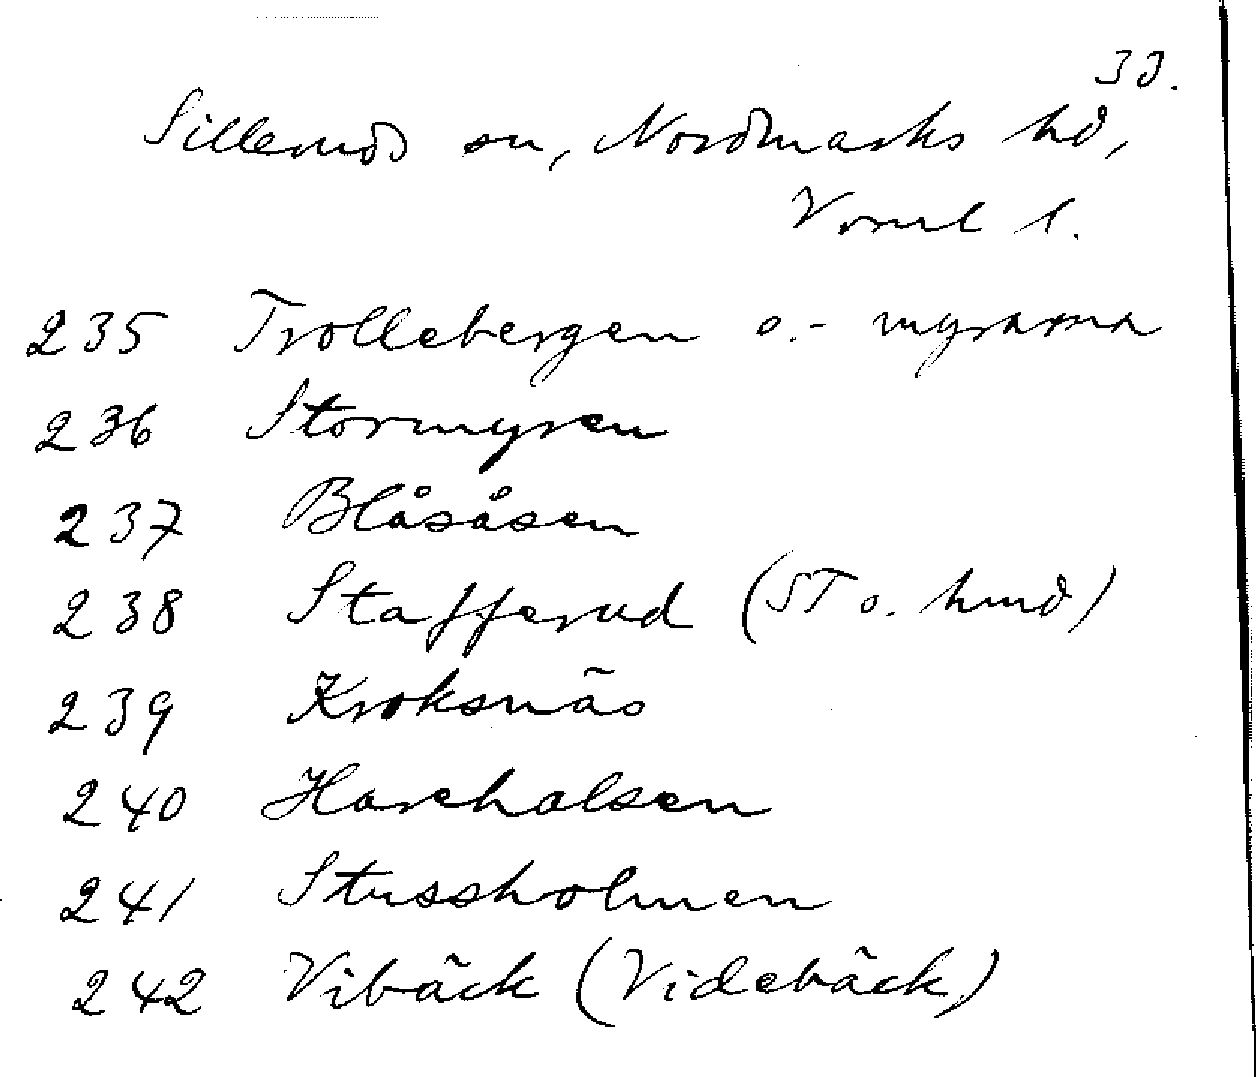 33.
Silleruds sn, Nordmarks hd,
Värml l.
235 Trollebergen o. - myrarna
236 Stormyren
237 Blåsåsen
238 Stafferud (ST o. hmd)
239 Kroksnäs
240 Harehalsen
241 Strussholmen
242 Vibäck (Videbäck)